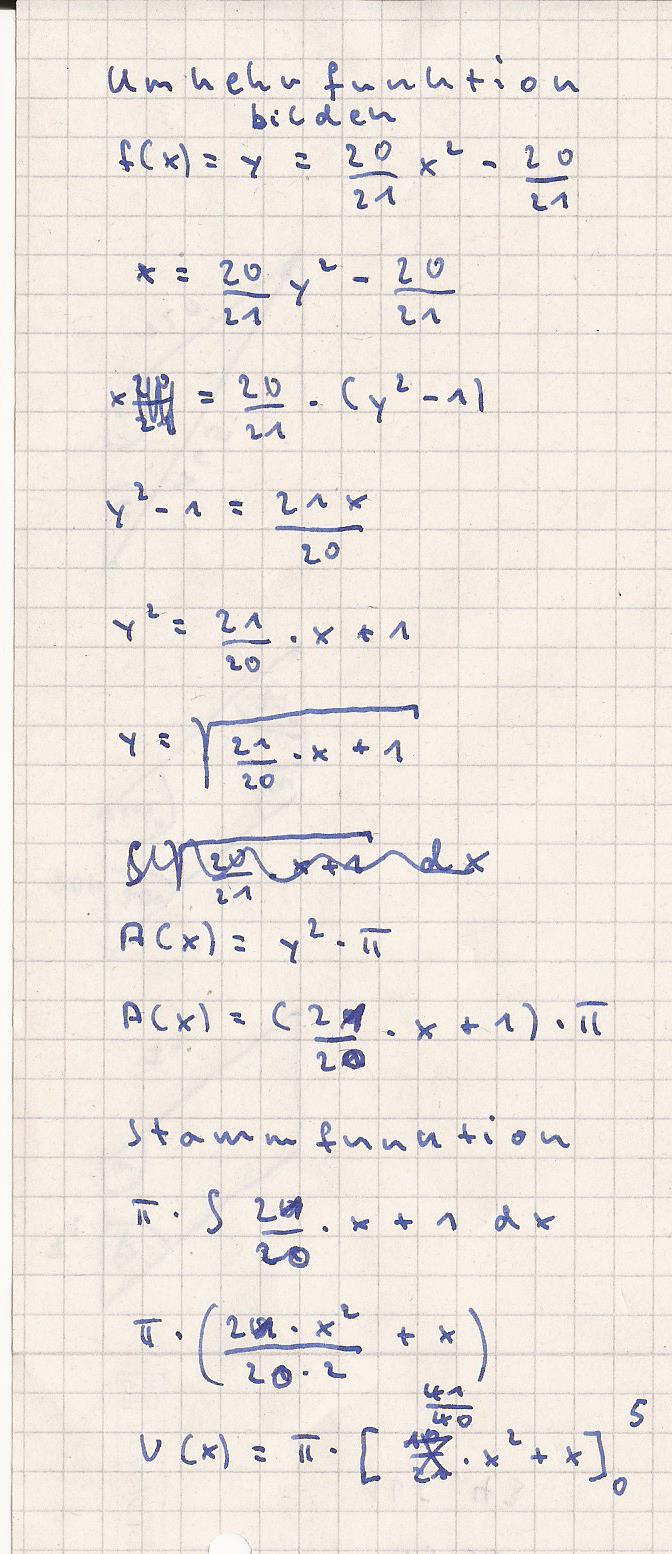 Umkehrfunktion
bilden
f(x) = y = 20/21 x² - 20/21
x = 20/21 y² - 20/21
x = 20/21 · (y² - 1)
y² - 1 = 21x/20
y² = 21/20 · x + 1
y = √(21/20 · x + 1)
A(x) = y² · π
A(x) = (21/20 · x + 1) · π
Stammfunktion
π · ∫ 21/20 · x + 1 dx
π · (21 · x²/20 · 2 + x)
V(x) = π · [41/40 · x² + x]₀⁵